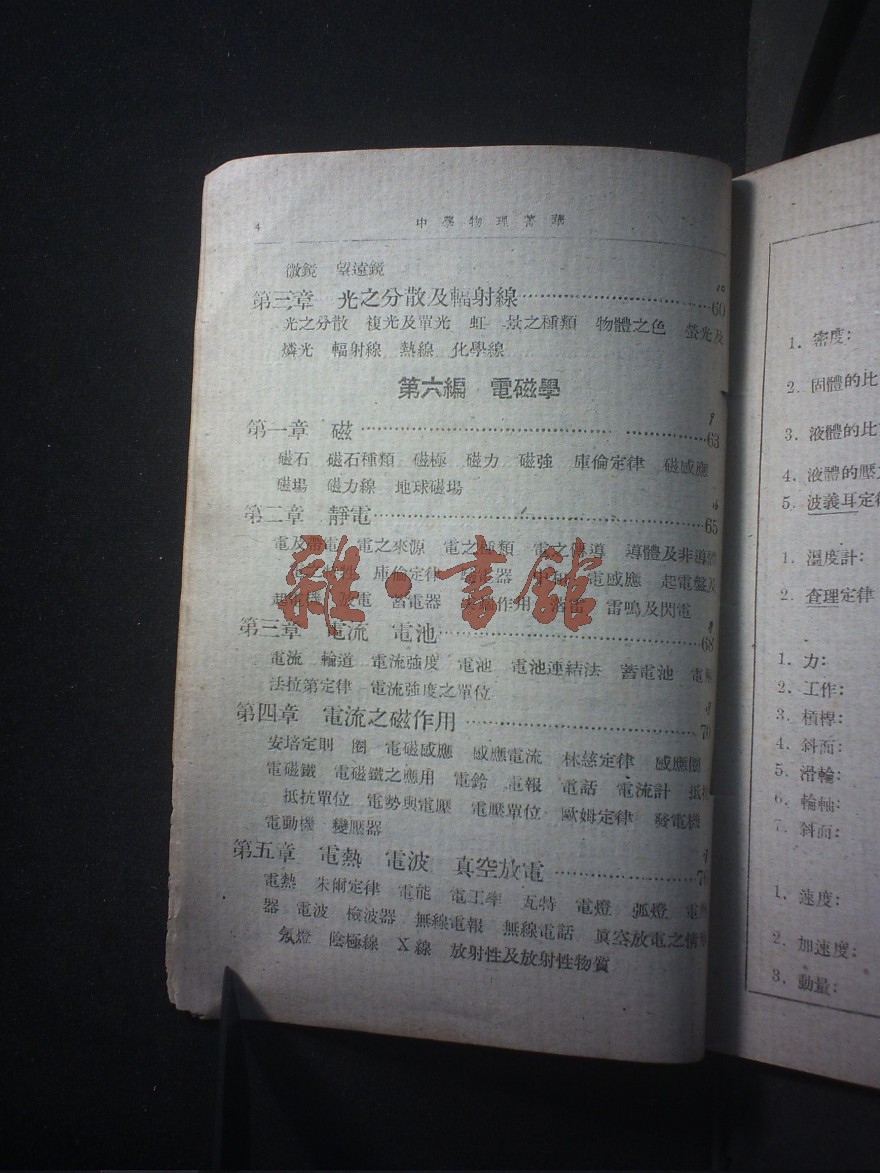 4 中學物理菁華
微鏡 望遠鏡
第三章 光之分散及輻射線 60
光之分散 複光及單光 虹 景之種類 物體之色 螢光及
燐光 輻射線 熱線 化學線
第六編 電磁學
第一章 磁 63
磁石 磁石種類 磁極 磁力 磁強 庫倫定律 磁感應
磁場 磁力線 地球磁場
第二章 靜電 65
電及帶電 電之來源 電之種類 電之傳導 導體及非導體
庫倫定律 電感應 起電盤及
起電機 放電 蓄電器 雷鳴及閃電
第三章 電流 電池 68
電流 輸道 電流強度 電池 電池連結法 蓄電池
法拉第定律 電流強度之單位
第四章 電流之磁作用 70
安培定則 圈 電磁感應 感應電流 林慈定律 感應圈
電磁鐵 電磁鐵之應用 電鈴 電報 電話 電流計 抵抗
抵抗單位 電勢與電壓 電壓單位 歐姆定律 發電機
電動機 變壓器
第五章 電熱 電波 真空放電
電熱 朱爾定律 電能 電工率 瓦特 電燈 弧燈
器 電波 檢波器 無線電報 無線電話 真空放電之情形
氖燈 陰極線 X線 放射性及放射性物質
雜·書館
1. 密度:
2. 固體的比
3. 液體的比
4. 液體的壓力
5. 波義耳定律
1. 溫度計:
2. 查理定律
1. 力:
2. 工作:
3. 槓桿:
4. 斜面:
5. 滑輪:
6. 輪軸:
7. 斜面:
1. 速度:
2. 加速度:
3. 動量: